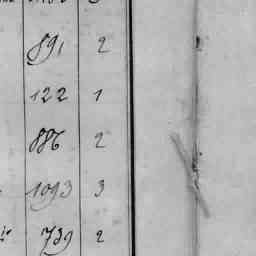 891 2
122 1
886 2
1093 3
739 2